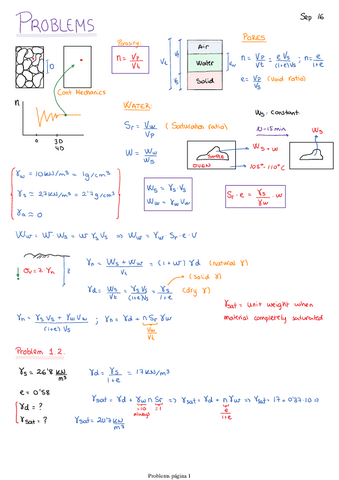 PROBLEMS
Sep 16
Porosity:
n = Vp/Vt
Cont Mechanics
n
0 3D 4D
D
PORES
Air
Water
Solid
Vt
Vw
n = Vp/Vt = e Vs/(1+e)Vs ; n = e/1+e
e = Vp/Vs (void ratio)
WATER:
Sr = Vw/Vp (Saturation ratio)
W = Ww/Ws
Ws : constant
10-15 min
Ws + w
OVEN
105º-110ºC
Ws
γw = 10 kN/m³ = 1g/cm³
γs ≈ 27 kN/m³ = 2'7 g/cm³
γa ≈ 0
Ws = γs Vs
Ww = γw Vw
Sr · e = γs/γw · w
Ww = W · Ws = w γs Vs ⇒ Ww = γw Sr · e · V
σv = z γn
z
γn = Ws + Ww/Vt = (1+w) γd (natural γ)
(solid γ)
γd = Ws/Vt = γs Vs/(1+e)Vs = γs/1+e (dry γ)
γn = γs Vs + γw Vw/(1+e) Vs ; γn = γd + n Sr γw
Vw/Vt
γsat = unit weight when
material completely saturated
Problem 1.2.
γs = 26'8 kN/m³
e = 0'58
γd = ?
γsat = ?
γd = γs/1+e = 17 kN/m³
γsat = γd + γw n Sr ⇒ γsat = γd + n γw ⇒ γsat = 17 + 0'37·10 =
=10 always
=1
e/1+e
γsat = 20'7 kN/m³
Problems página 1